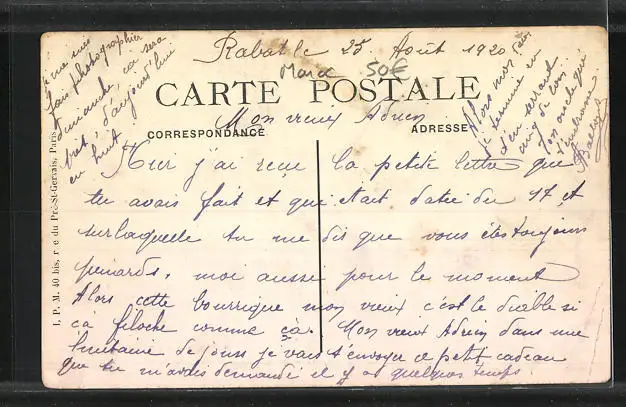 Rabat le 25 Août 1920
Maroc 50F
CARTE POSTALE
Mon vieux Adrien
CORRESPONDANCE
ADRESSE
Hier j'ai reçu la petite lettre que
tu avais fait et qui était datée du 17 et
sur laquelle tu me dis que vous êtes toujours
peinards, moi aussi pour le moment
Alors cette bourrique mon vieux c'est le diable si
ça filoche comme ça. Mon vieux Adrien dans une
huitaine de jours je vais t'envoyer ce petit cadeau
que tu m'avais demandé il y a quelques temps.
je me suis
fais photographier
dimanche, ça sera
prêt d'aujourd'hui
en huit.
Alors mon vieux
je termine en
t'en serrant
cinq de loin.
Ton oncle qui
t'embrasse
I. P. M. 40 bis, r e du Pré-St-Gervais, Paris